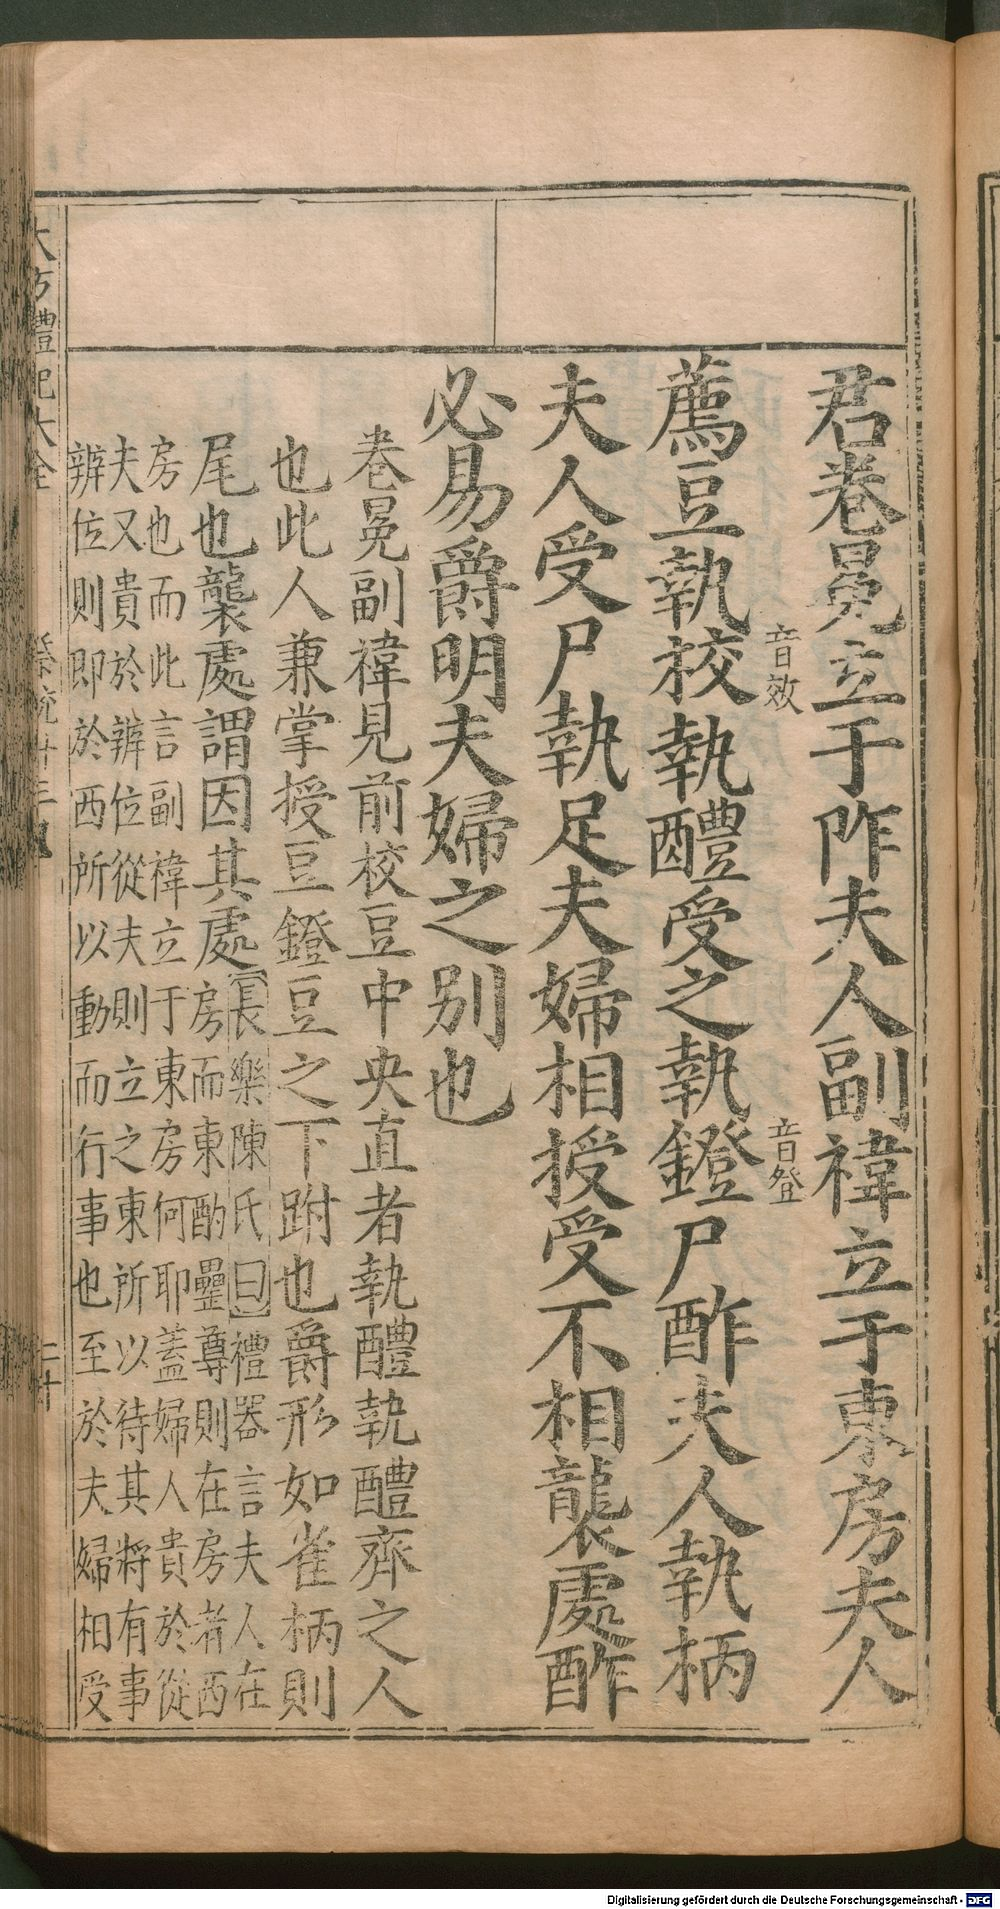 君卷冕立于阼夫人副褘立于東房夫人
薦豆執校執醴受之執鐙尸酢夫人執柄
音效
音登
夫人受尸執足夫婦相授受不相襲處酢
必易爵明夫婦之別也
卷冕副褘見前校豆中央直者執醴執醴齊之人
也此人兼掌授豆鐙豆之下跗也爵形如雀柄則
尾也襲處謂因其處
長樂陳氏曰禮器言夫人在
房而東酌罍尊則在房者西
房也而此言副褘立于東房何耶蓋婦人貴於從
夫又貴於辨位從夫則立之東所以待其將有事
辨位則即於西所以動而行事也至於夫婦相受
大方禮記大全
祭統廿五
二十
Digitalisierung gefördert durch die Deutsche Forschungsgemeinschaft - DFG